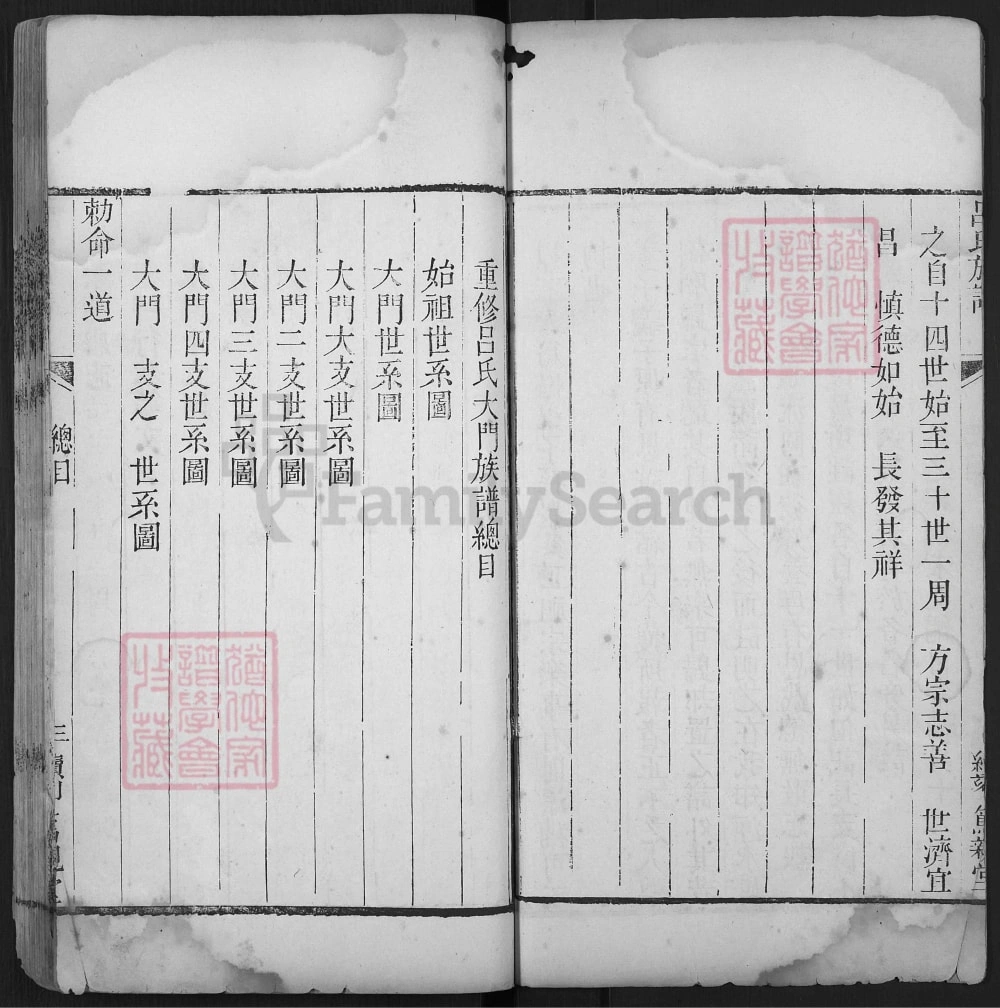 呂氏族譜
之自十四世始至三十世一周　方宗志善　世濟宜
昌　慎德如始　長發其祥
篤親堂
重修呂氏大門族譜總目
始祖世系圖
大門世系圖
大門大支世系圖
大門二支世系圖
大門三支世系圖
大門四支世系圖
大門　支之　世系圖
勅命一道
總目
三
FamilySearch